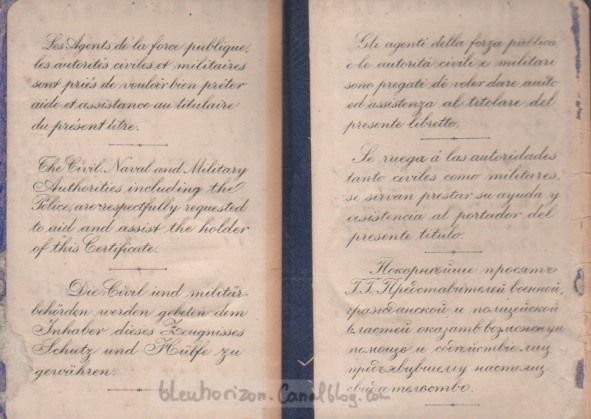 Les Agents de la force publique,
les autorités civiles et militaires
sont priés de vouloir bien prêter
aide et assistance au titulaire
du présent titre.
The Civil, Naval and Military
Authorities including the
Police, are respectfully requested
to aid and assist the holder
of this Certificate.
Die Civil und militär-
behörden werden gebeten dem
Inhaber dieses Zeugnisses
Schutz und Hülfe zu
gewähren.
Gli agenti della forza pubblica
e le autorità civili e militari
sono pregati di voler dare aiuto
ed assistenza al titolare del
presente libretto.
Se ruega á las autoridades
tanto civiles como militares,
se sirvan prestar su ayuda y
asistencia al portador del
presente titulo.
Покорнѣйше просятъ
Г.Г. Представителей военной,
гражданской и полицейской
властей оказать возможную
помощь и содѣйствіе лиц
предъявившему настоящ
свидѣтельство.
bleuhorizon.Canalblog.com